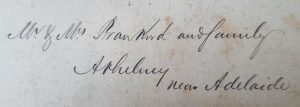 Mr & Mrs Frankord and family
Athelney
near Adelaide